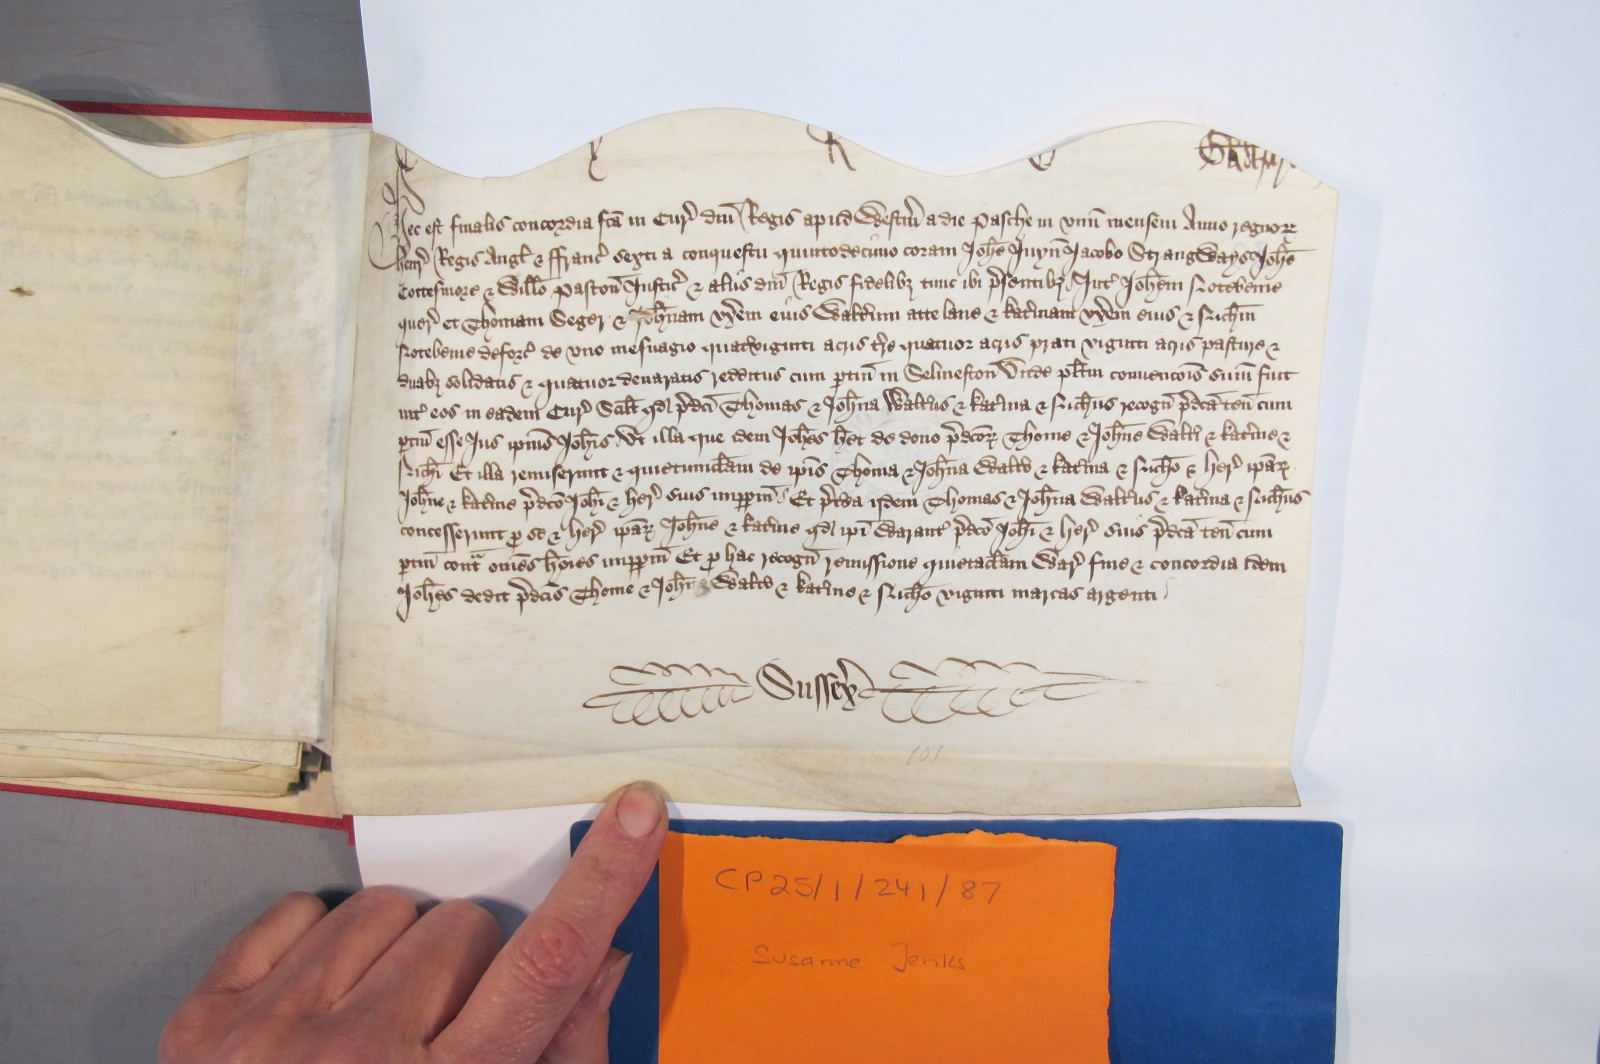 Hec est finalis concordia fca in Cur dni Regis apud Westm a die Pasche in unu mensem Anno regnor
Henr Regis Angl & ffranc sexti a conquestu quintodecimo coram Johe Juyn Jacobo Strangways Johe
Cottesmore & Willo Paston Justic & aliis dni Regis fidelibz tunc ibi psentibz Int Johem Notebeme
quer et Thomam Seger & Johnam uxem eius Waltum atte lane & katinam uxem eius & Richm
Notebeme deforc de uno mesuagio quatvigинti acris tre quatuor acris prati viginti acris pasture &
duabz solidatis & quatuor denaratis redditus cum ptin in Selmeston Unde plitm convencois sum fuit
int eos in eadem Cur Scilt qd pdci Thomas & Johna Waltus & katina & Richus recogn pdca ten cum
ptin esse Jus ipius Johis Ut illa que idem Johes het de dono pdcor Thome & Johne Walti & katine &
Richi Et illa remiserunt & quietumclam de ipis Thoma & Johna Walto & katina & Richo & her ipar
Johne & katine pdco Johi & her suis imppm Et ptea idem Thomas & Johna Waltus & katina & Richus
concesserunt p se & her ipar Johne & katine qd ipi Warant pdco Johi & her suis pdca ten cum
ptin cont omes hoies imppm Et p hac recogn remissione quietaclam War fine & concordia idem
Johes dedit pdcis Thome & Johne Walto & katine & Richo viginti marcas argenti
Sussex
101
CP25/1/241/87
Susanne Jenks